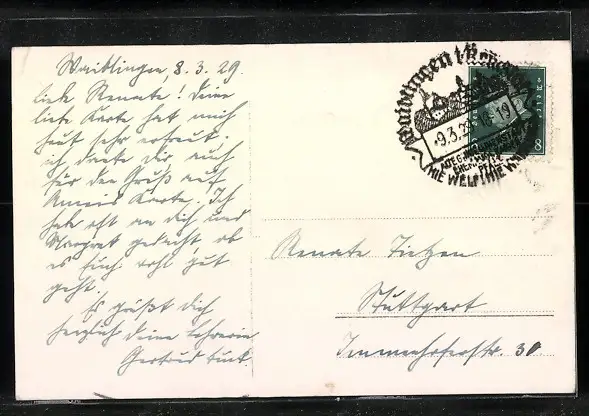 Waiblingen, 8.3.29.
liebe Renate! Deine
liebe Karte hat mich
heut sehr erfreut.
ich danke dir auch
für den Gruß auf
Karte. Ich
habe oft an dich und
Margret gedacht, ob
es Euch wohl gut
geht.
Es grüßt dich
herzlich deine Lehrerin
Gertrud
Waiblingen (Württ.)
9.3.29. 18-19
HIE WELF HIE WAIBLING
8
Renate Tietzen
Stuttgart
Immenhoferstr. 30.